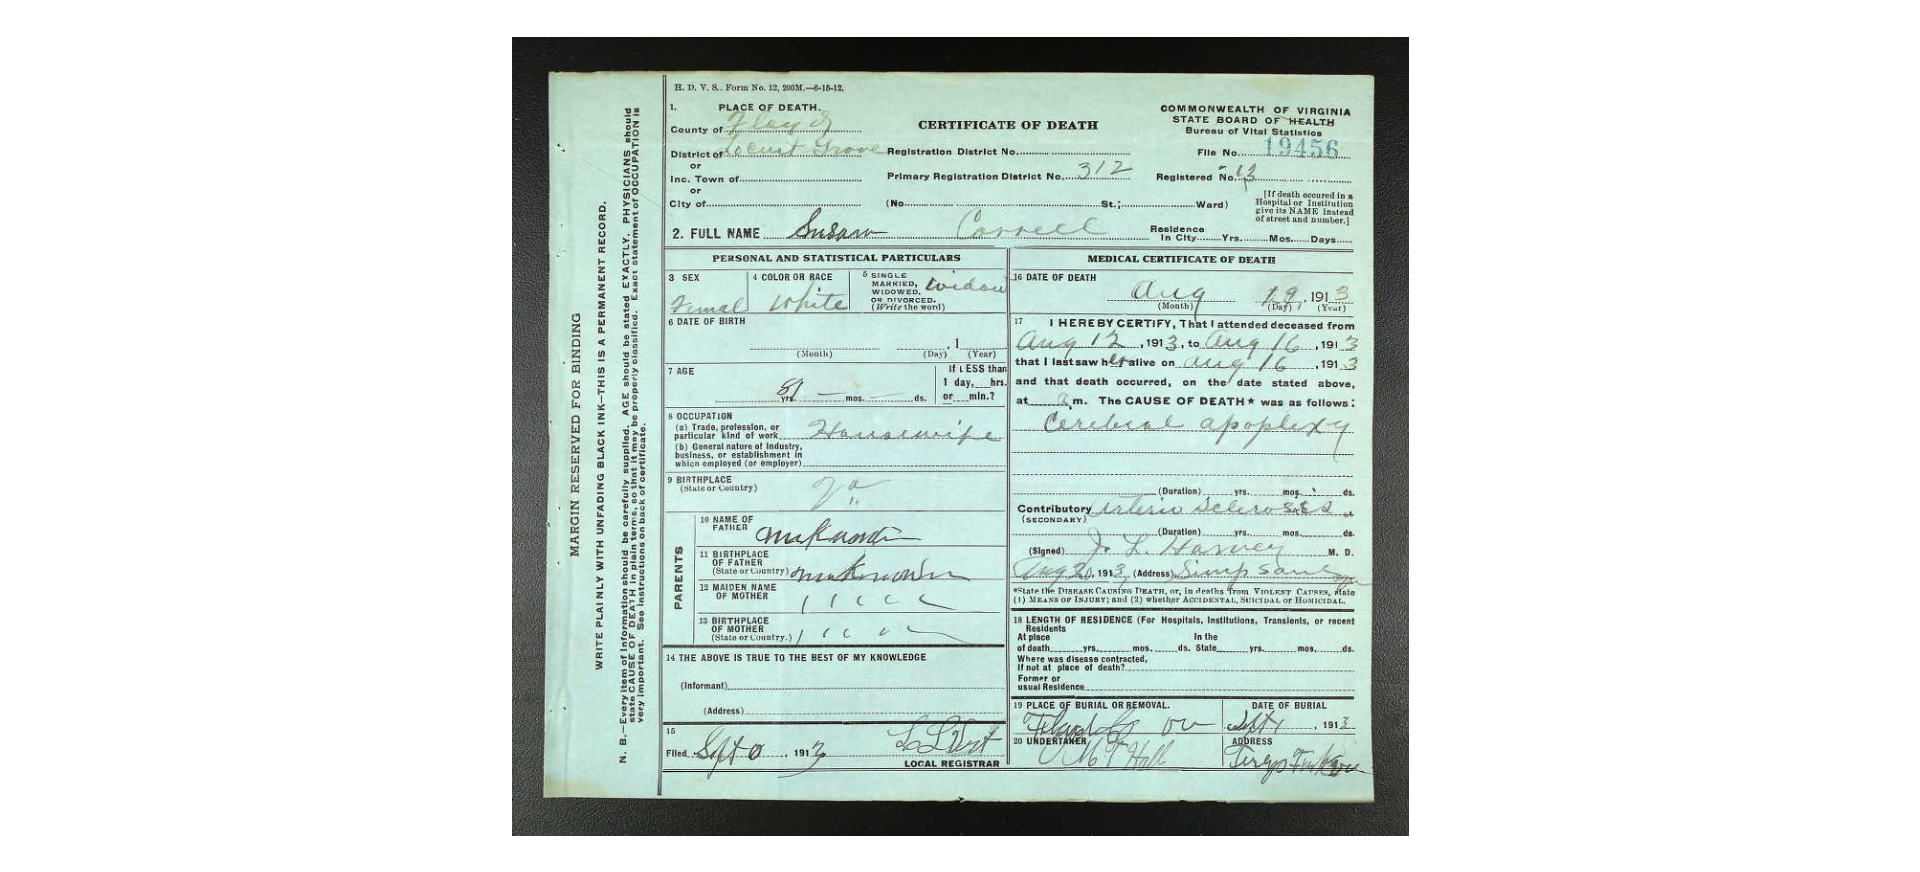 H. D. V. S.. Form No. 12, 200M.—6-15-12.
1. PLACE OF DEATH.
County of Floyd
District of Locust Grove
or
Inc. Town of
or
City of
CERTIFICATE OF DEATH
Registration District No.
Primary Registration District No. 312
(No St.; Ward)
COMMONWEALTH OF VIRGINIA
STATE BOARD OF HEALTH
Bureau of Vital Statistics
File No. 19456
Registered No. 13
[If death occured in a
Hospital or Institution
give its NAME instead
of street and number.]
2. FULL NAME Susan Correll
Residence
In City Yrs. Mos. Days
PERSONAL AND STATISTICAL PARTICULARS
3 SEX
Femal
4 COLOR OR RACE
White
5 SINGLE
MARRIED,
WIDOWED,
OR DIVORCED.
(Write the word)
Widow
6 DATE OF BIRTH
, 1
(Month) (Day) (Year)
7 AGE
81 yrs. — mos. — ds.
If LESS than
1 day, hrs.
or min.?
8 OCCUPATION
(a) Trade, profession, or
particular kind of work Housewife
(b) General nature of Industry,
business, or establishment in
which employed (or employer)
9 BIRTHPLACE
(State or Country) Va
"
PARENTS
10 NAME OF
FATHER unknown
11 BIRTHPLACE
OF FATHER
(State or Country) unknown
12 MAIDEN NAME
OF MOTHER
13 BIRTHPLACE
OF MOTHER
(State or Country.)
14 THE ABOVE IS TRUE TO THE BEST OF MY KNOWLEDGE
(Informant)
(Address)
15
Filed Sept , 1913
LOCAL REGISTRAR
MEDICAL CERTIFICATE OF DEATH
16 DATE OF DEATH
Aug 19, 1913
(Month) (Day) (Year)
17 I HEREBY CERTIFY, That I attended deceased from
Aug 12, 1913, to Aug 16, 1913
that I last saw her alive on Aug 16, 1913
and that death occurred, on the date stated above,
at m. The CAUSE OF DEATH* was as follows:
Cerebral apoplexy
(Duration) yrs. mos. ds.
Contributory Arterio Sclerosis
(SECONDARY)
(Duration) yrs. mos. ds.
(Signed) J. L. Harvey M. D.
Aug 20, 1913, (Address) Simpsons
*State the DISEASE CAUSING DEATH, or, in deaths from VIOLENT CAUSES, state
(1) MEANS OF INJURY; and (2) whether ACCIDENTAL, SUICIDAL or HOMICIDAL.
18 LENGTH OF RESIDENCE (For Hospitals, Institutions, Transients, or recent
Residents
At place In the
of death yrs. mos. ds. State yrs. mos. ds.
Where was disease contracted,
If not at place of death?
Former or
usual Residence
19 PLACE OF BURIAL OR REMOVAL.
Floyd Co
DATE OF BURIAL
Sept 1, 1913
20 UNDERTAKER
Hall
ADDRESS
MARGIN RESERVED FOR BINDING
WRITE PLAINLY WITH UNFADING BLACK INK—THIS IS A PERMANENT RECORD.
N. B.—Every item of information should be carefully supplied. AGE should be stated EXACTLY. PHYSICIANS should
state CAUSE OF DEATH in plain terms, so that it may be properly classified. Exact statement of OCCUPATION is
very important. See instructions on back of certificate.